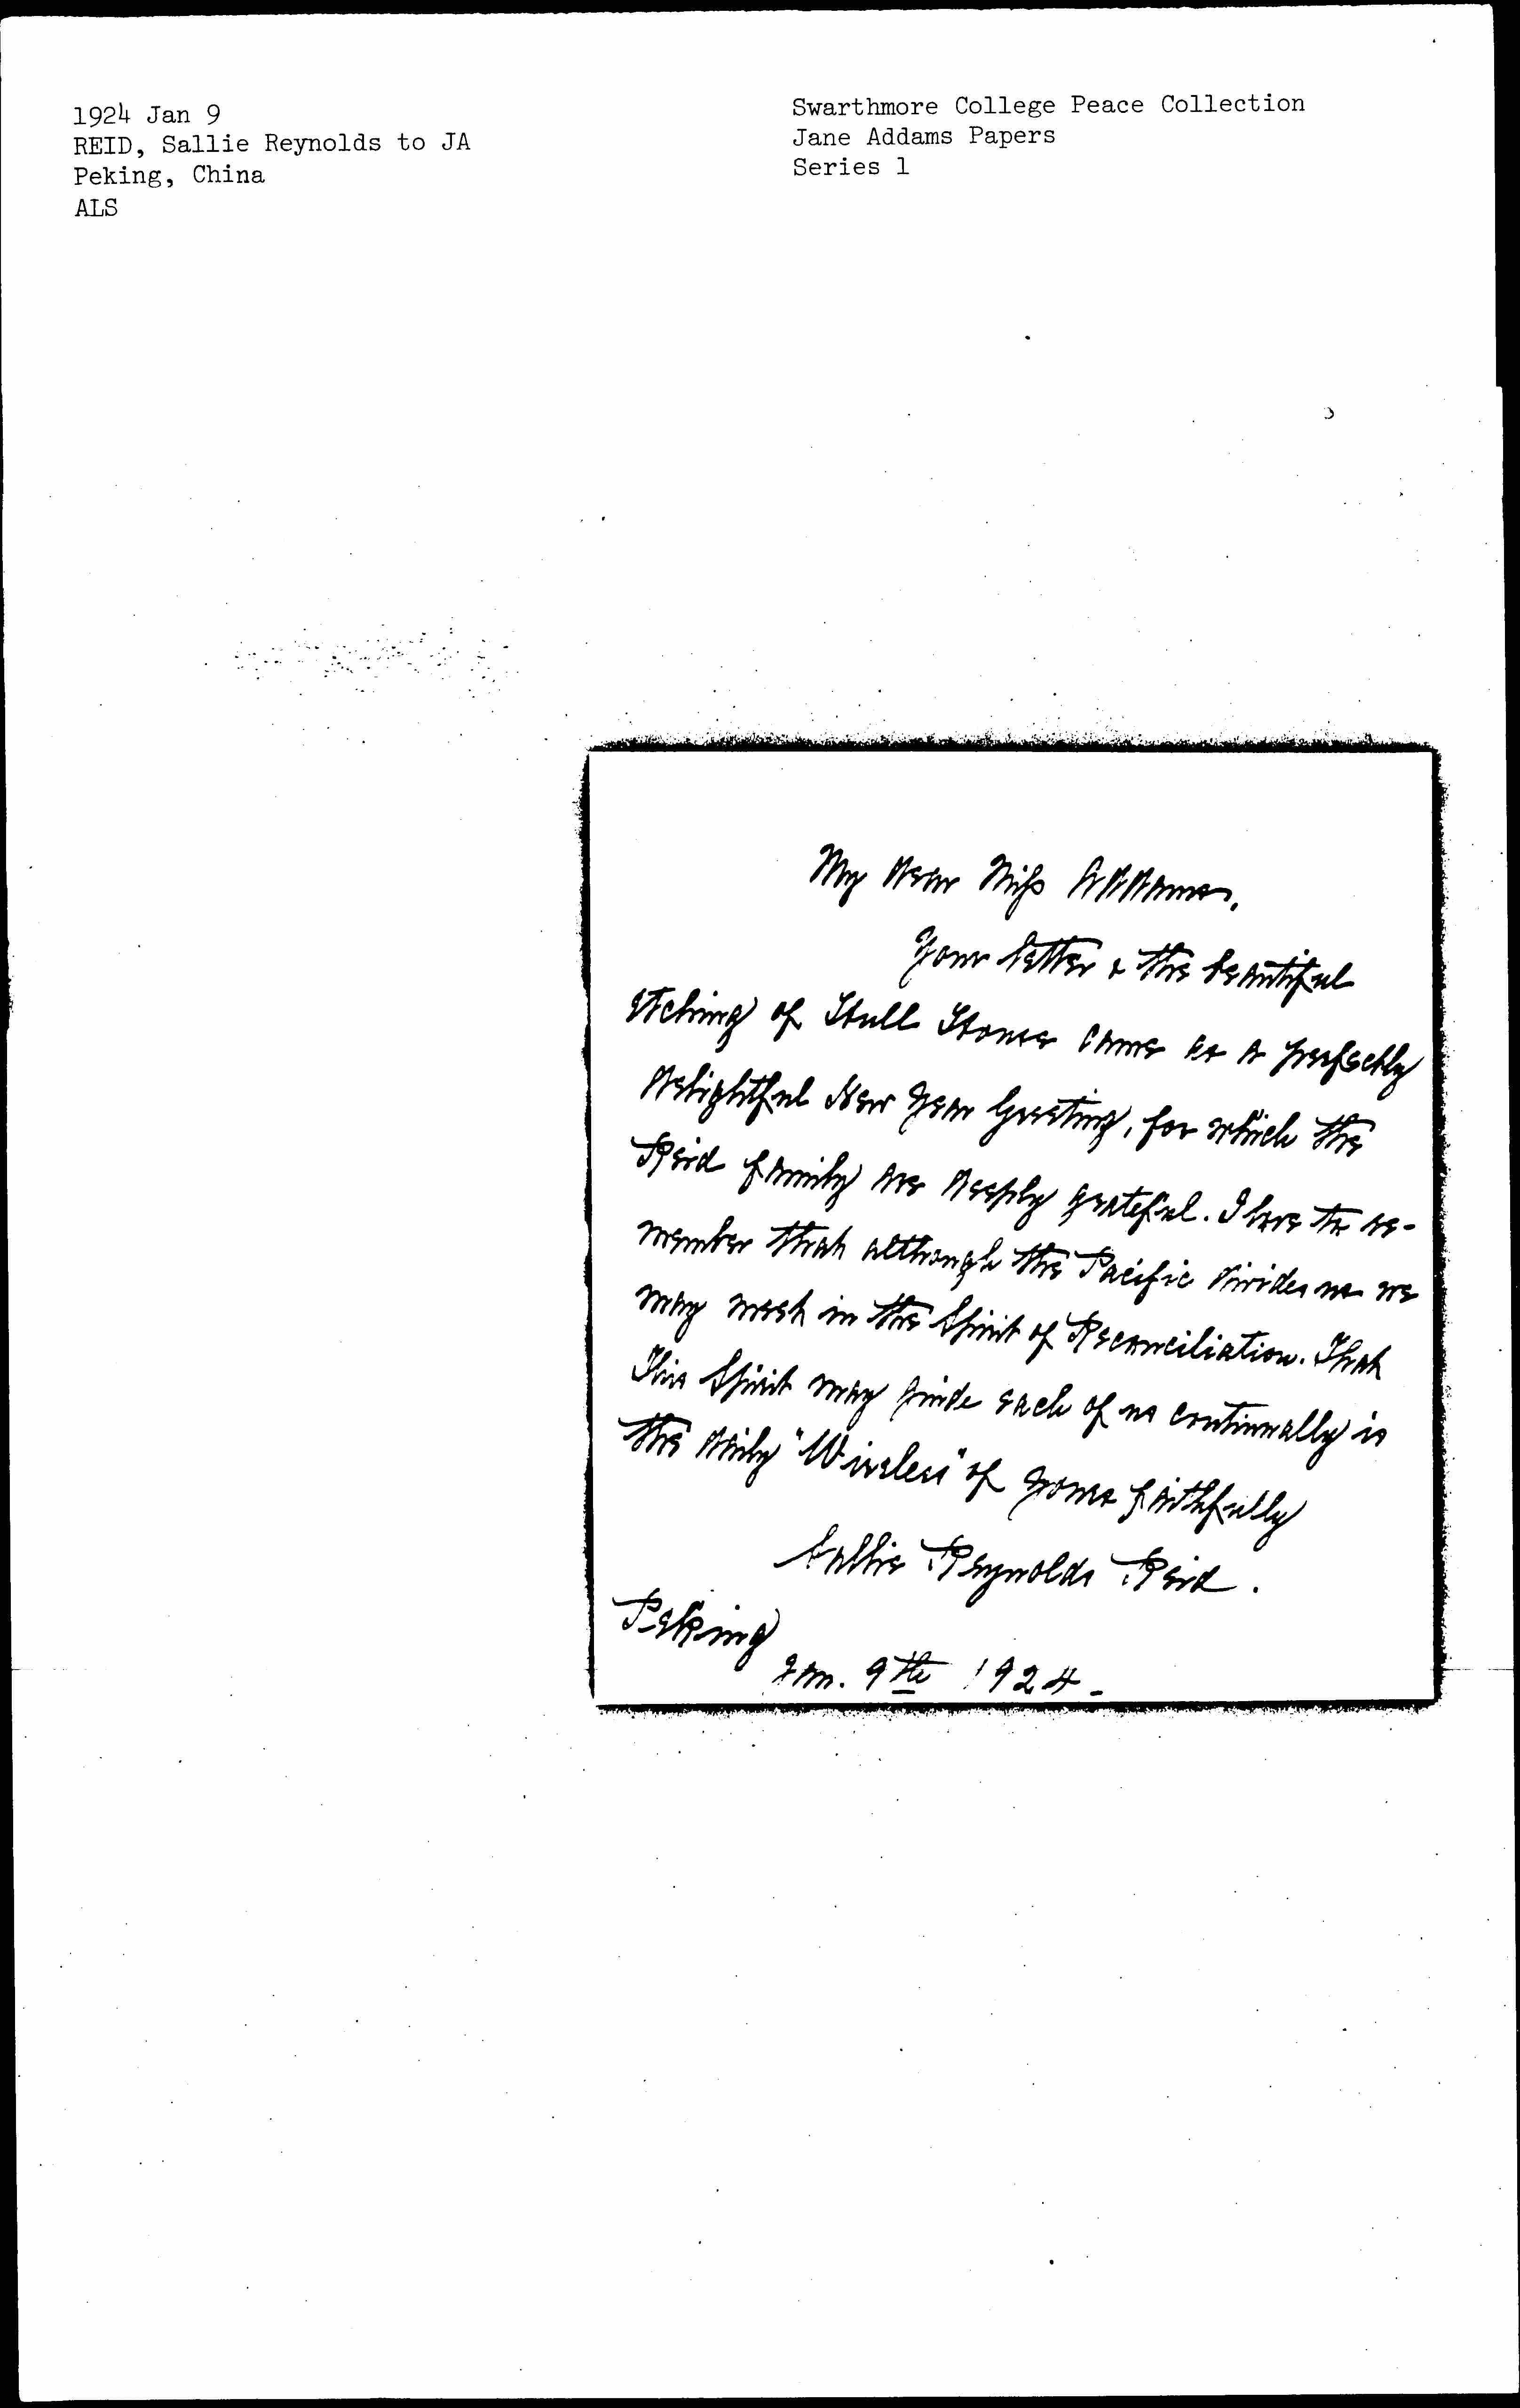 1924 Jan 9
REID, Sallie Reynolds to JA
Peking, China
ALS
Swarthmore College Peace Collection
Jane Addams Papers
Series 1
My dear Miss Addams,
Your letter & the beautiful
etching of Hull House came as a perfectly
delightful New Year Greeting, for which the
Reid family are deeply grateful. I love to re-
member that although the Pacific divides us we
may meet in the Spirit of Reconciliation. That
This Spirit may guide each of us continually is
the daily "Wireless" of yours faithfully
Sallie Reynolds Reid.
Peking
Jan. 9th 1924-